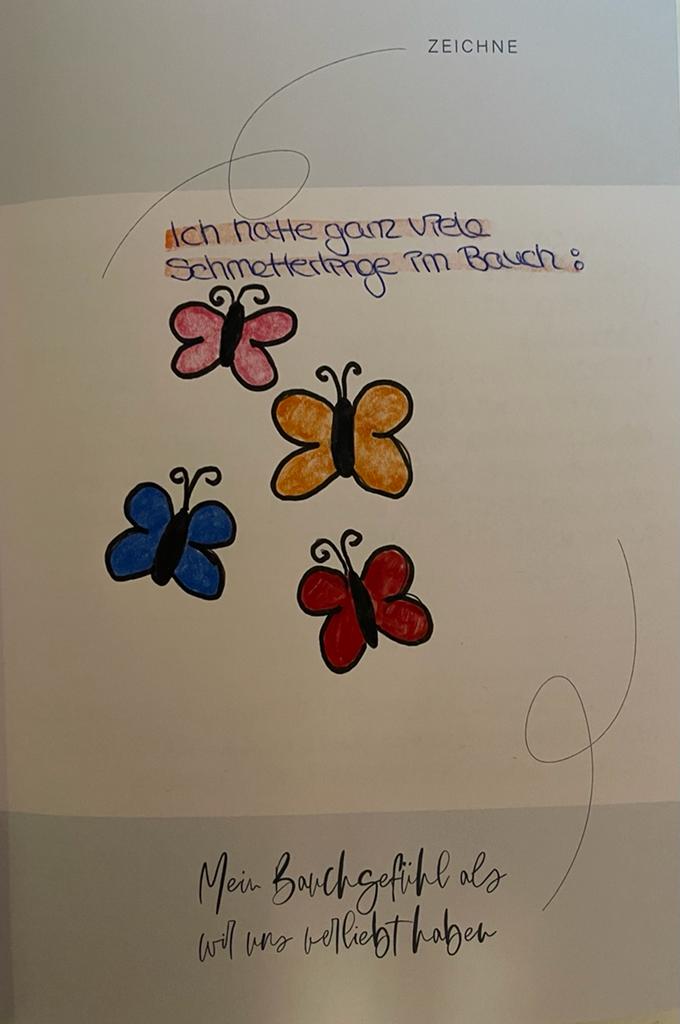 ZEICHNE
Ich hatte ganz viele
Schmetterlinge im Bauch :
Mein Bauchgefühl als
wir uns verliebt haben